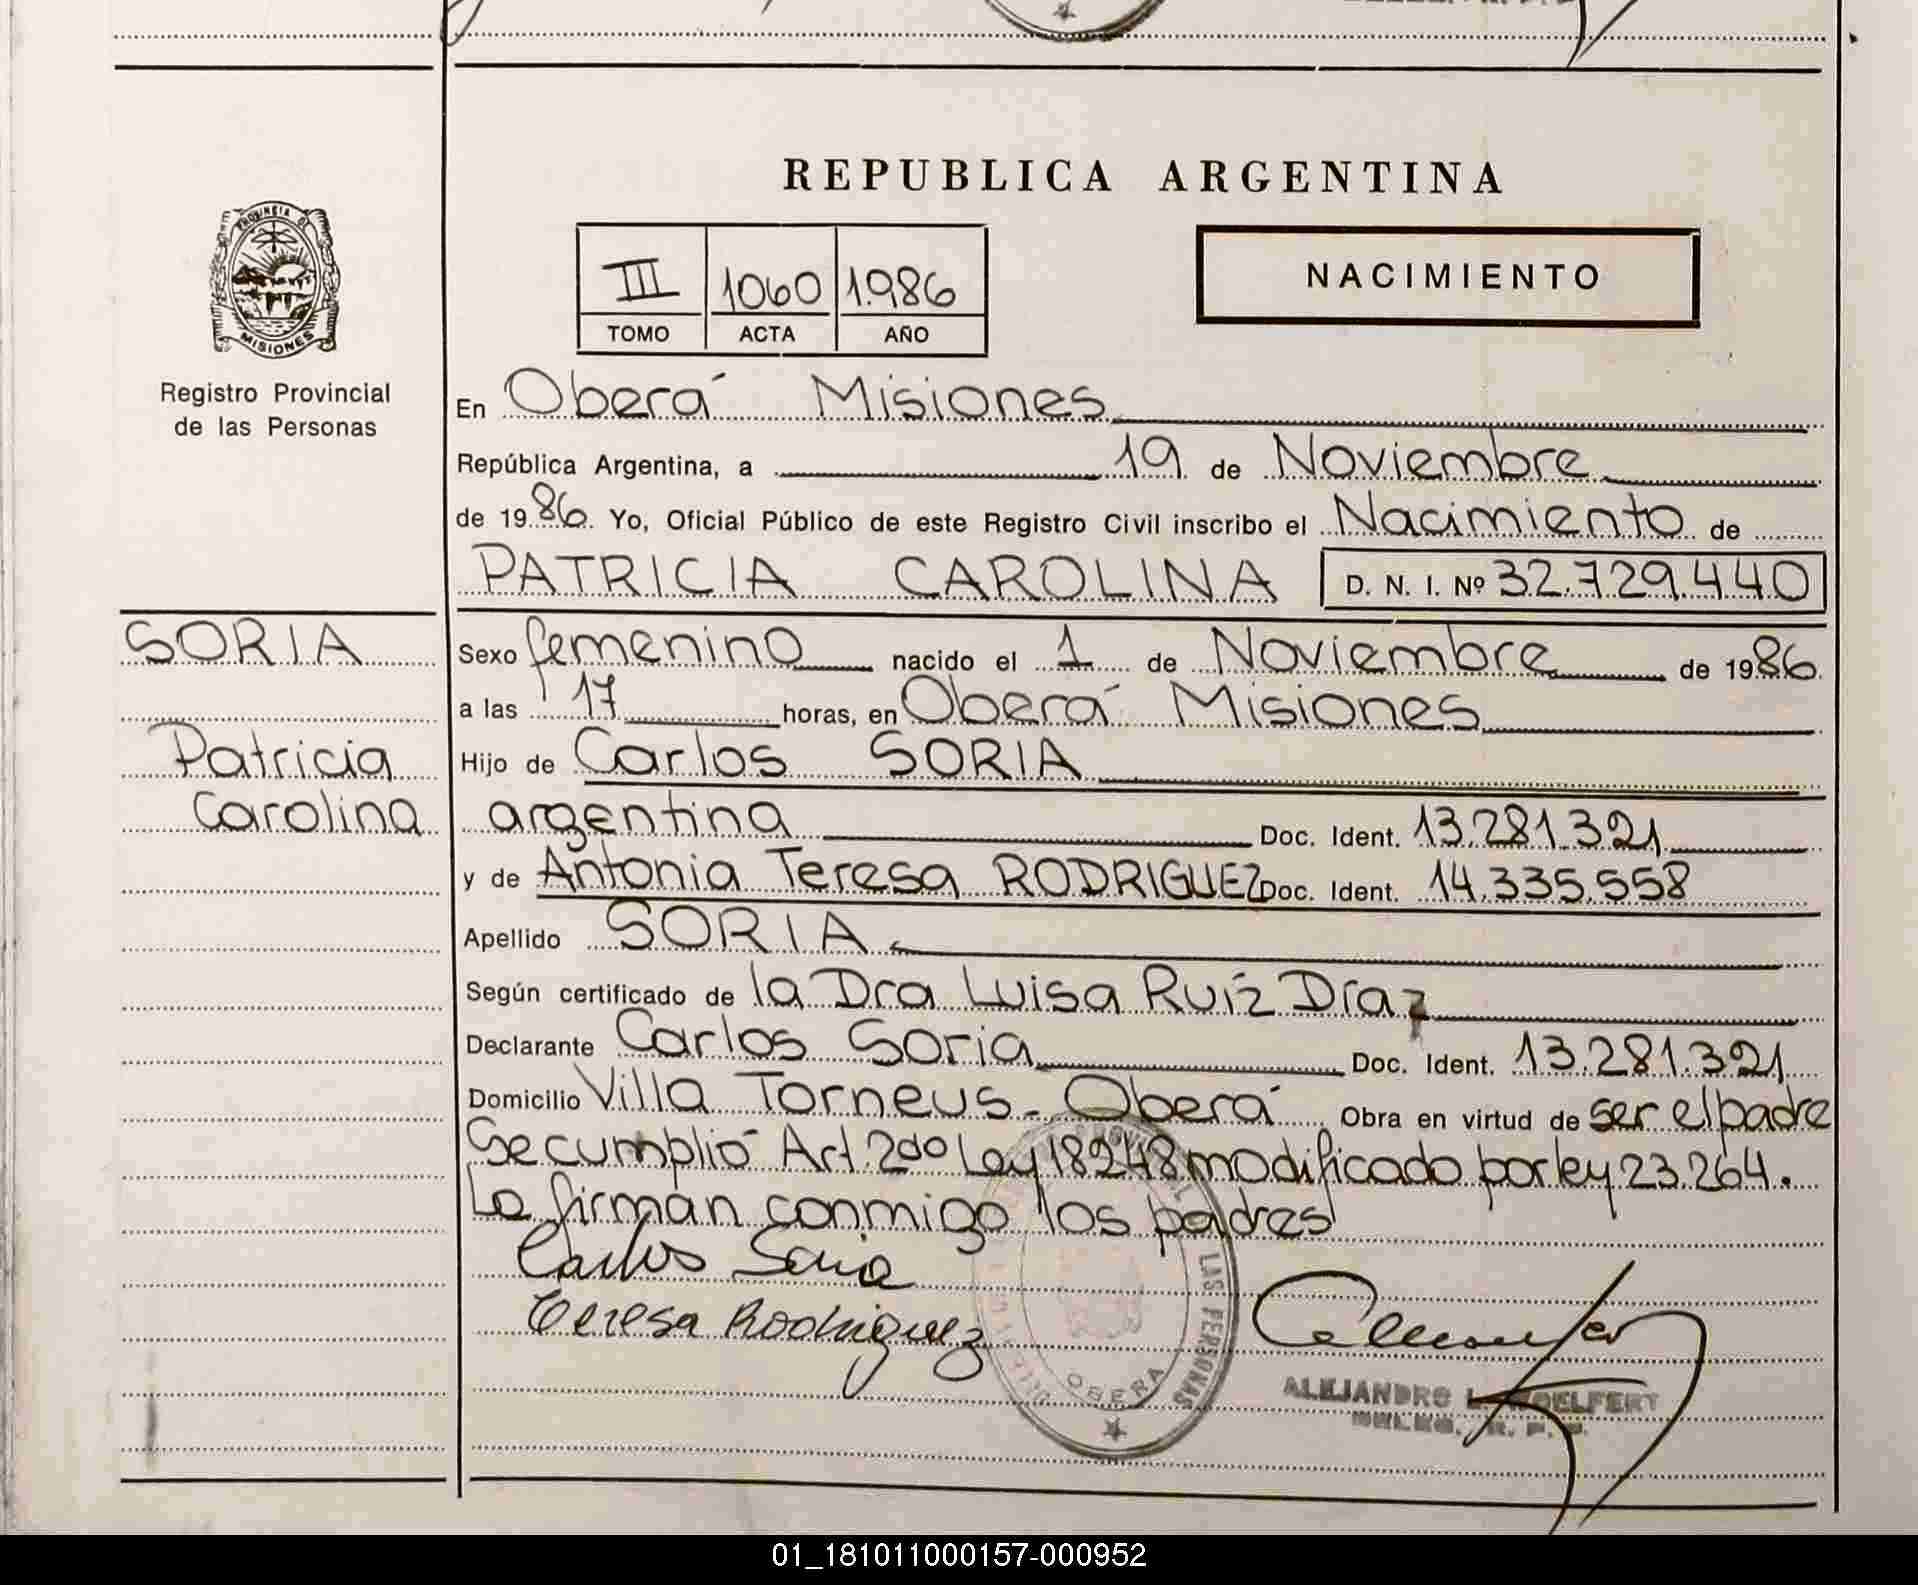 REPUBLICA ARGENTINA
PROVINCIA D
MISIONES
Registro Provincial
de las Personas
III 1060 1.986
TOMO ACTA AÑO
NACIMIENTO
En Oberá Misiones
República Argentina, a 19 de Noviembre
de 1986. Yo, Oficial Público de este Registro Civil inscribo el Nacimiento de
PATRICIA CAROLINA D. N. I. Nº 32.729.440
SORIA
Patricia
Carolina
Sexo femenino nacido el 1 de Noviembre de 1986.
a las 17 horas, en Oberá Misiones
Hijo de Carlos SORIA
argentina Doc. Ident. 13.281.321
y de Antonia Teresa RODRIGUEZ Doc. Ident. 14.335.558
Apellido SORIA
Según certificado de la Dra Luisa Ruíz Díaz
Declarante Carlos Soria Doc. Ident. 13.281.321
Domicilio Villa Torneus - Oberá Obra en virtud de ser el padre
Se cumplió Art. 2do Ley 18248 modificado por ley 23.264.
La firman conmigo los padres
Carlos Soria
Teresa Rodriguez
LAS PERSONAS
OBERA
ALEJANDRO L. WOELFERT
DELEG. R. P. P.
01_181011000157-000952